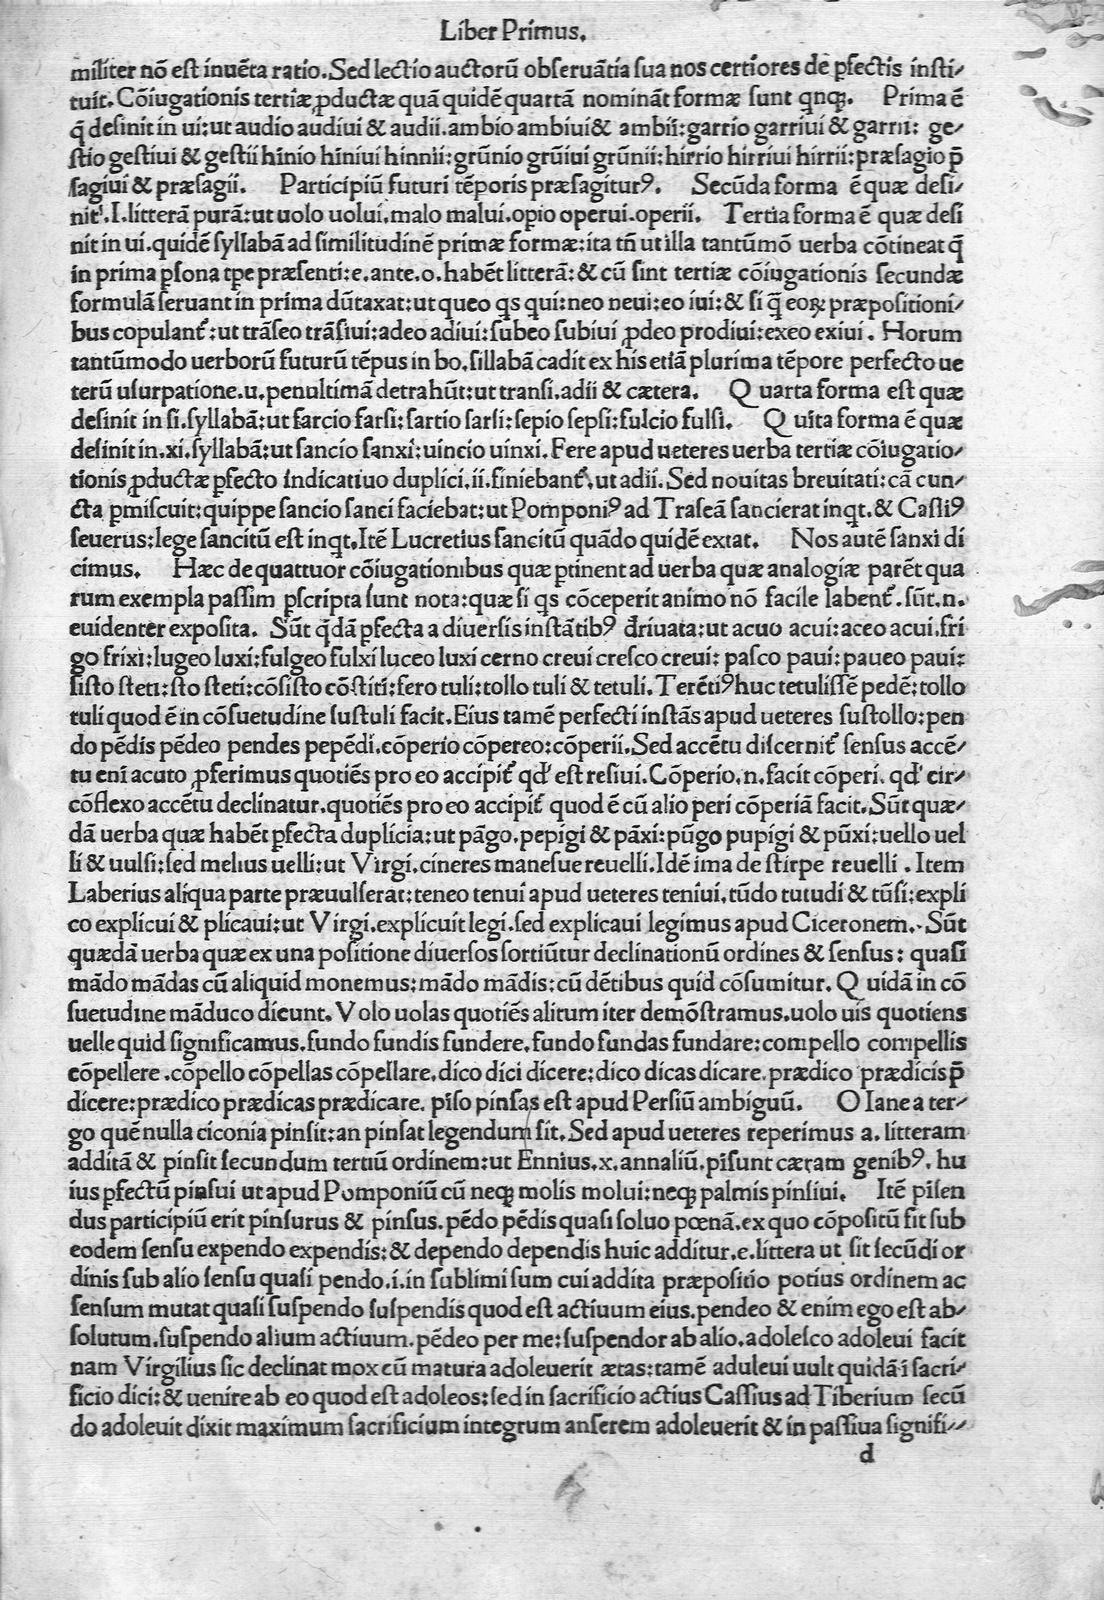 Liber Primus.
militer nõ est inuẽta ratio. Sed lectio auctorũ obseruãtia sua nos certiores de ꝑfectis insti⸗
tuit. Cõiugationis tertiæ ꝓductæ quã quidẽ quartã nominãt formæ sunt qnqꝫ. Prima ẽ
q̃ desinit in ui: ut audio audiui & audii. ambio ambiui & ambii: garrio garriui & garrii: ge⸗
stio gestiui & gestii hinio hiniui hinnii: grũnio grũiui grũnii: hirrio hirriui hirrii: præsagio p̃
sagiui & præsagii. Participiũ futuri tẽporis præsagiturꝰ. Secũda forma ẽ quæ desi⸗
nitˈ. I. litterã purã: ut uolo uolui. malo malui. opio operui. operii. Tertia forma ẽ quæ desi
nit in ui. quidẽ syllabã ad similitudinẽ primæ formæ: ita tñ ut illa tantũmõ uerba cõtineat q̃
in prima ꝑsona tꝑe præsenti: e. ante. o. habẽt litterã: & cũ sint tertiæ cõiugationis secundæ
formulã seruant in prima dũtaxat: ut queo qs qui: neo neui: eo iui: & si q̃ eoꝝ præpositioni⸗
bus copulant᷒: ut trãseo trãsiui: adeo adiui: subeo subiui ꝓdeo prodiui: exeo exiui. Horum
tantũmodo uerborũ futurũ tẽpus in bo. sillabã cadit ex his etiã plurima tẽpore perfecto ue
terũ usurpatione. u. penultimã detrahũt: ut transi. adii & cætera. Q uarta forma est quæ
desinit in si. syllabã: ut farcio farsi: sartio sarsi: sepio sepsi: fulcio fulsi. Q uita forma ẽ quæ
desinit in. xi. syllabã: ut sancio sanxi: uincio uinxi. Fere apud ueteres uerba tertiæ cõiugatio⸗
tionis ꝓductæ ꝑfecto indicatiuo duplici. ii. finiebant᷒. ut adii. Sed nouitas breuitati: cã cun⸗
cta ꝑmiscuit: quippe sancio sanci faciebat: ut Pomponiꝰ ad Traseã sancierat inqt. & Cassiꝰ
seuerus: lege sancitũ est inqt. Itẽ Lucretius sancitũ quãdo quidẽ extat. Nos autẽ sanxi di
cimus. Hæc de quattuor cõiugationibus quæ ꝑtinent ad uerba quæ analogiæ parẽt qua
rum exempla passim ꝑscripta sunt nota: quæ si qs cõceperit animo nõ facile labent᷒. sũt. n.
euidenter exposita. Sũt q̃dã ꝑfecta a diuersis instãtibꝰ đriuata: ut acuo acui: aceo acui. fri
go frixi: lugeo luxi: fulgeo fulxi luceo luxi cerno creui cresco creui: pasco paui: paueo paui:
sisto steti: sto steti: cõsisto cõstiti: fero tuli: tollo tuli & tetuli. Terẽtiꝰ huc tetulissẽ pedẽ: tollo
tuli quod ẽ in cõsuetudine sustuli facit. Eius tamẽ perfecti instãs apud ueteres sustollo: pen
do pẽdis pẽdeo pendes pepẽdi. cõperio cõpereo: cõperii. Sed accẽtu discernit᷒ sensus accẽ⸗
tu eni acuto ꝓferimus quotiẽs pro eo accipit᷒ qd' est resiui. Cõperio. n. facit cõperi. qd' cir⸗
cõflexo accẽtu declinatur. quotiẽs pro eo accipit᷒ quod ẽ cũ alio peri cõperiã facit. Sũt quæ⸗
dã uerba quæ habẽt ꝑfecta duplicia: ut pãgo. pepigi & pãxi: pũgo pupigi & pũxi: uello uel
li & uulsi: sed melius uelli: ut Virgi. cineres manesue reuelli. Idẽ ima de stirpe reuelli. Item
Laberius aliqua parte præuulserat: teneo tenui apud ueteres teniui. tũdo tutudi & tũsi: expli
co explicui & plicaui: ut Virgi. explicuit legi. sed explicaui legimus apud Ciceronem. Sũt
quædã uerba quæ ex una positione diuersos sortiũtur declinationũ ordines & sensus: quasi
mãdo mãdas cũ aliquid monemus: mãdo mãdis: cũ dẽtibus quid cõsumitur. Q uidã in cõ
suetudine mãduco dicunt. Volo uolas quotiẽs alitum iter demõstramus. uolo uis quotiens
uelle quid significamus. fundo fundis fundere. fundo fundas fundare: compello compellis
cõpellere. cõpello cõpellas cõpellare. dico dici dicere: dico dicas dicare. prædico prædicis p̃
dicere: prædico prædicas prædicare. piso pinsas est apud Persiũ ambiguũ. O Iane a ter⸗
go quẽ nulla ciconia pinsit: an pinsat legendum sit. Sed apud ueteres reperimus a. litteram
additã & pinsit secundum tertiũ ordinem: ut Ennius. x. annaliũ. pisunt cæram genibꝰ. hu
ius ꝑfectũ pinsui ut apud Pomponiũ cũ neqꝫ molis molui: neqꝫ palmis pinsiui. Itẽ pisen
dus participiũ erit pinsurus & pinsus. pẽdo pẽdis quasi soluo pœnã. ex quo cõpositũ fit sub
eodem sensu expendo expendis: & dependo dependis huic additur. e. littera ut sit secũdi or
dinis sub alio sensu quasi pendo. i. in sublimi sum cui addita præpositio potius ordinem ac
sensum mutat quasi suspendo suspendis quod est actiuum eius. pendeo & enim ego est ab⸗
solutum. suspendo alium actiuum. pẽdeo per me: suspendor ab alio. adolesco adoleui facit
nam Virgilius sic declinat mox cũ matura adoleuerit ætas: tamẽ aduleui uult quidã i sacri⸗
ficio dici: & uenire ab eo quod est adoleos: sed in sacrificio actius Cassius ad Tiberium secũ
do adoleuit dixit maximum sacrificium integrum anserem adoleuerit & in passiua signifi⸗
d